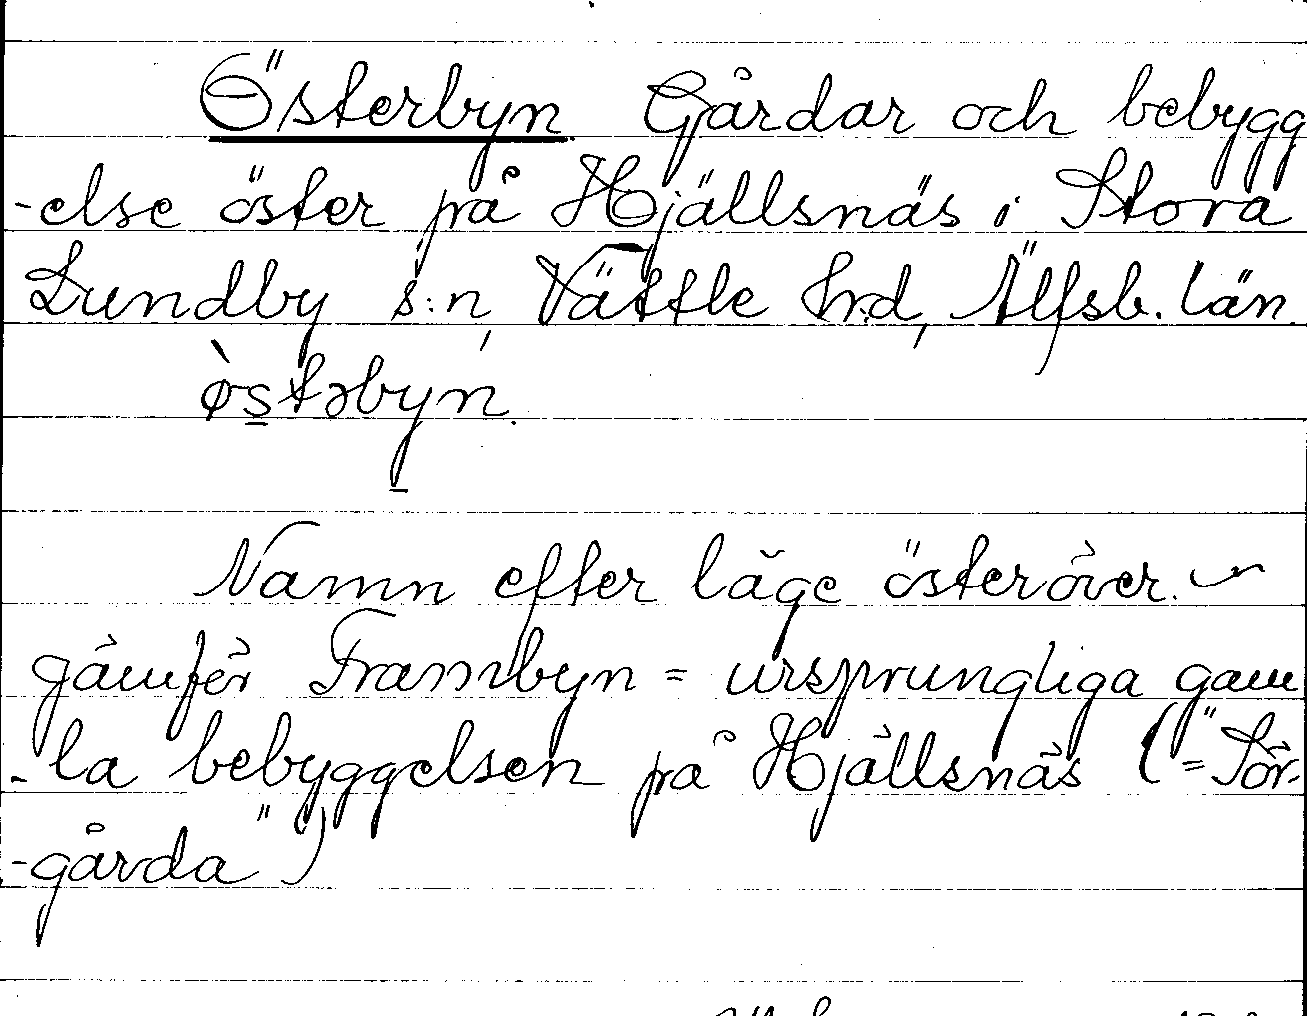 Österbyn Gårdar och bebygg
-else öster på Hjällsnäs i Stora
Lundby s:n, Vättle hrd, Älfsb. län
ø̀stəbyn.
Namn efter läge österöver.
jämför Frambyn = ursprungliga gam
-la bebyggelsen på Hjällsnäs (= "Sör-
-gårda")